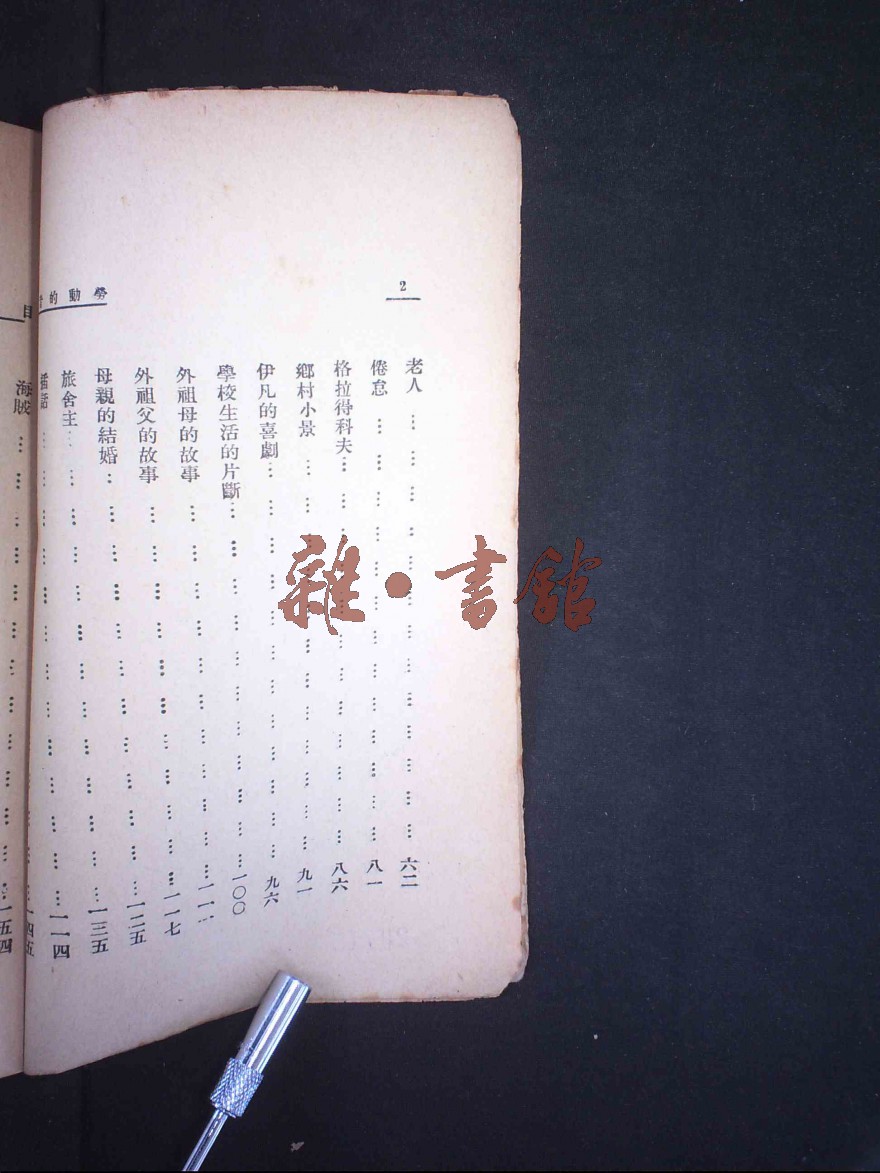 2
勞動的
老人 … … … … … … … … … … … 六二
倦怠 … … … … … … … … … … … 八一
格拉得科夫 … … … … … … … … … … 八六
鄉村小景 … … … … … … … … … … 九一
伊凡的喜劇 … … … … … … … … … … 九六
學校生活的片斷 … … … … … … … … … 一〇〇
外祖母的故事 … … … … … … … … … 一一
外祖父的故事 … … … … … … … … … 一一七
母親的結婚 … … … … … … … … … … 一二五
旅舍主 … … … … … … … … … … 一三五
插話 … … … … … … … … … … 一一四
目
海賊 … … … … … … … … … … 一四五
一五四
雜•書館